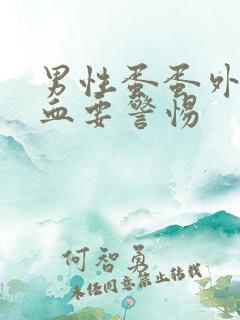 男性蛋蛋外
血要警惕
何智勇
未经同意禁止转载